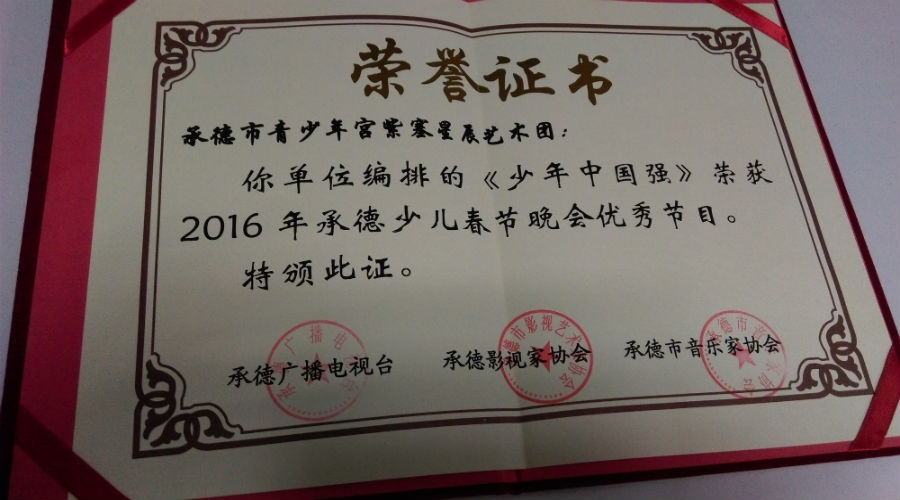 荣誉证书
承德市青少年宫紫塞星辰艺术团：
你单位编排的《少年中国强》荣获
2016年承德少儿春节晚会优秀节目。
特颁此证。
承德广播电视台 承德影视家协会 承德市音乐家协会